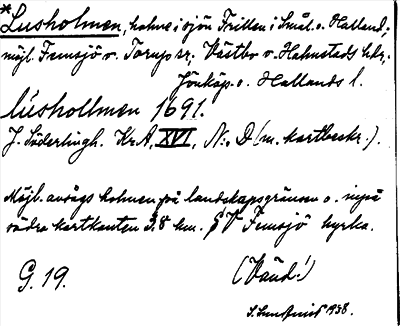 *Lusholmen, holme i sjön Fritten i Smål. o. Halland,
möjl. Femsjö o. Torup sr, Västbo o. Halmstads hdr,
Jönköp. o. Hallands l.
lusholmen 1691.
J. Söderlingh. Kr.A, XVI, N:o D (m. kartbeskr.).
Möjl. avsågs holmen på landskapsgränsen o. inpå
södra kartkanten 3.8 km. V Femsjö kyrka.
G. 19.
(Vänd!)
1938.